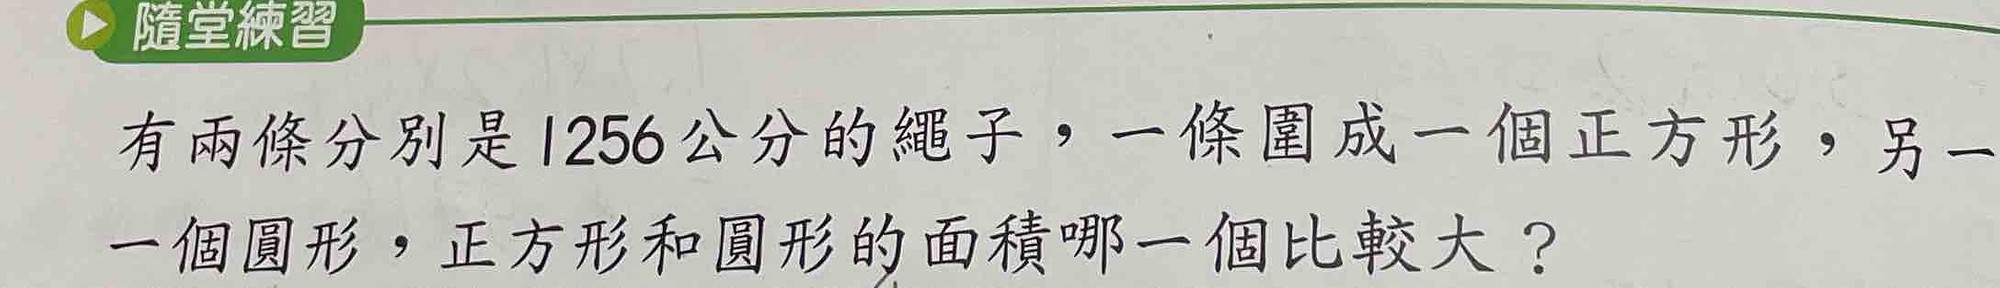 隨堂練習
有兩條分別是1256公分的繩子，一條圍成一個正方形，另一
一個圓形，正方形和圓形的面積哪一個比較大？